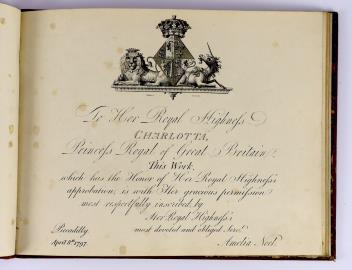 To Her Royal Highness
CHARLOTTA,
Princess Royal of Great Britain,
This Work,
which has the Honor of Her Royal Highness's
approbation, is with Her gracious permission
most respectfully inscribed by
Her Royal Highness's
most devoted and obliged Serv.t
Piccadilly
April 8th 1797.
Amelia Noel.